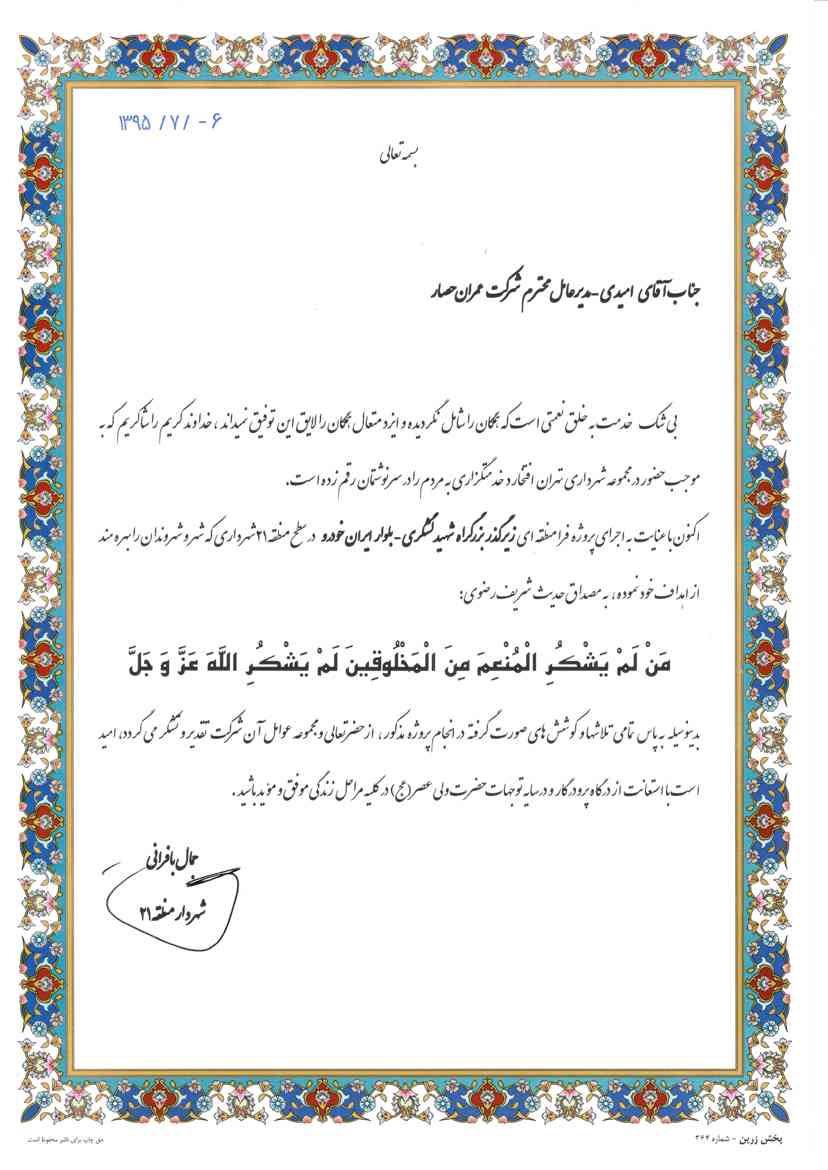 ۱۳۹۵ /۷/ -۶
بسمه تعالی
جناب آقای امیدی - مدیرعامل محترم شرکت عمران حصار
بی شک خدمت به خلق نعمتی است که همگان را شامل نگردیده و ایزد متعال همگان را لایق این توفیق نمیداند ، خداوند کریم را شاکریم که به
موجب حضور در مجموعه شهرداری تهران افتخار خدمتگزاری به مردم را در سرنوشتمان رقم زده است.
اکنون با عنایت به اجرای پروژه فرامنطقه ای زیرگذر بزرگراه شهید لشگری - بلوار ایران خودرو در سطح منطقه ۲۱ شهرداری که شهر و شهروندان را بهره مند
از اهداف خود نموده، به مصداق حدیث شریف رضوی:
مَنْ لَمْ يَشْكُرِ الْمُنْعِمَ مِنَ الْمَخْلُوقِينَ لَمْ يَشْكُرِ اللَّهَ عَزَّ وَ جَلَّ
بدینوسیله به پاس تمامی تلاشها و کوشش های صورت گرفته در انجام پروژه مذکور ، از حضرتعالی و مجموعه عوامل آن شرکت تقدیر و تشکر می گردد، امید
است با استعانت از درگاه پرودرگار و در سایه توجهات حضرت ولی عصر (عج) در کلیه مراحل زندگی موفق و موید باشید .
جمال بافرانی
شهردار منطقه ۲۱
پخش زرین - شماره ۳۶۴
حق چاپ برای ناشر محفوظ است